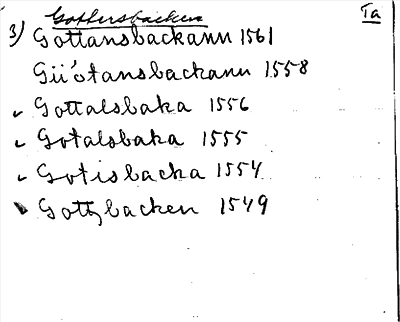 Gottersbacken Ta
3) Gottansbackann 1561
Giiötansbackann 1558
Gottalsbaka 1556
Gotalsbaka 1555
Gotisbacka 1554
Gottzbacken 1549